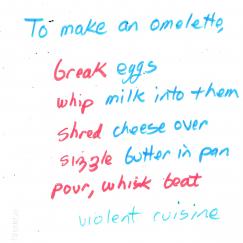 To make an omelette,
break eggs
whip milk into them
shred cheese over
sizzle butter in pan
pour, whisk beat
violent cuisine